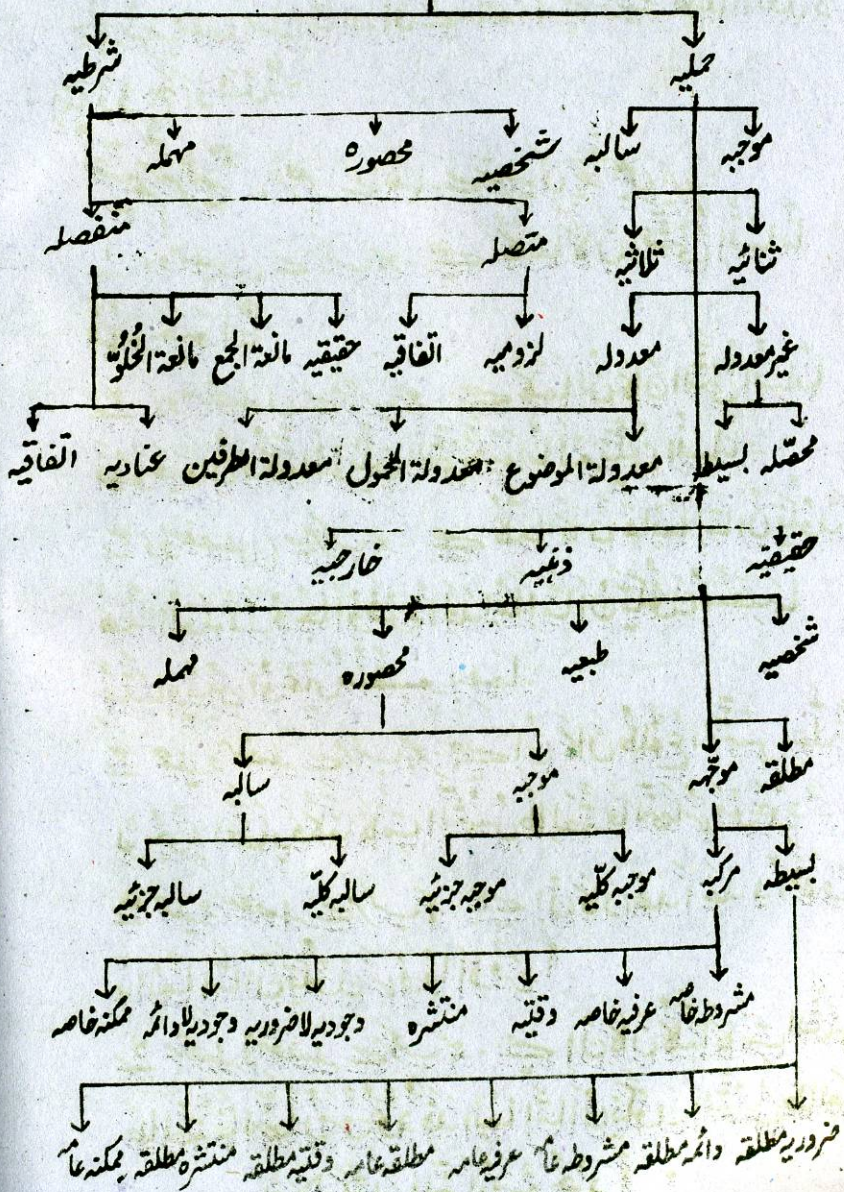 حملیه شرطیه
موجبه سالبه شخصیه محصوره مهمله
ثنائیه ثلاثیه متصله منفصله
غیر معدوله معدوله لزومیه اتفاقیه حقیقیه مانعة الجمع مانعة الخُلُوّ
محصّله بسیطه معدولة الموضوع معدولة المحمول معدولة الطرفین عنادیه اتفاقیه
حقیقیه ذہنیہ خارجیه
شخصیه طبعیه محصوره مهمله
مطلقه موجّهه موجبه سالبه
بسیطه مرکبه موجبه کلّیه موجبه جزئیه سالبه کلّیه سالبه جزئیه
مشروطه خاصه عرفیه خاصه وقتیه منتشره وجودیه لا ضروریه وجودیه لا دائمه ممکنه خاصه
ضروریه مطلقه دائمه مطلقه مشروطه عامه عرفیه عامه مطلقه عامه وقتیه مطلقه منتشره مطلقه ممکنه عامه